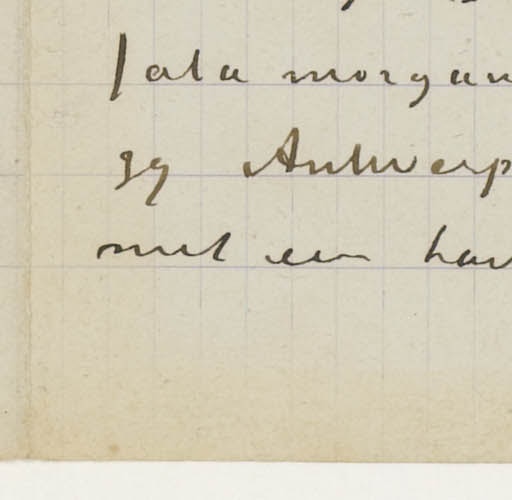 fata morgan
gy Antwerp
met een har